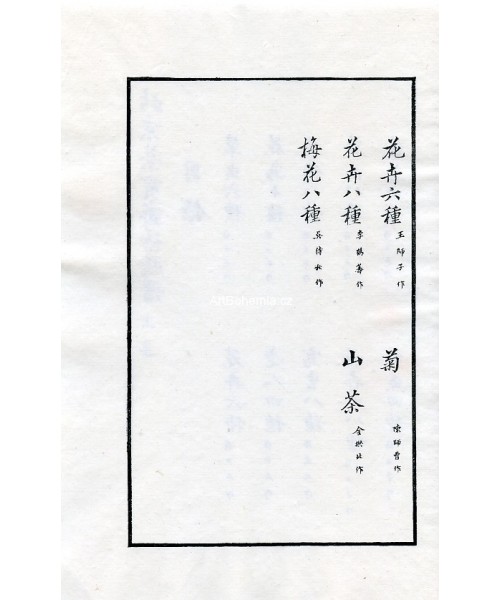 花卉六種 王師子作
菊 陳師曾作
花卉八種 李鶴籌作
山茶 金拱北作
梅花八種 吳待秋作
ArtBohemia.cz